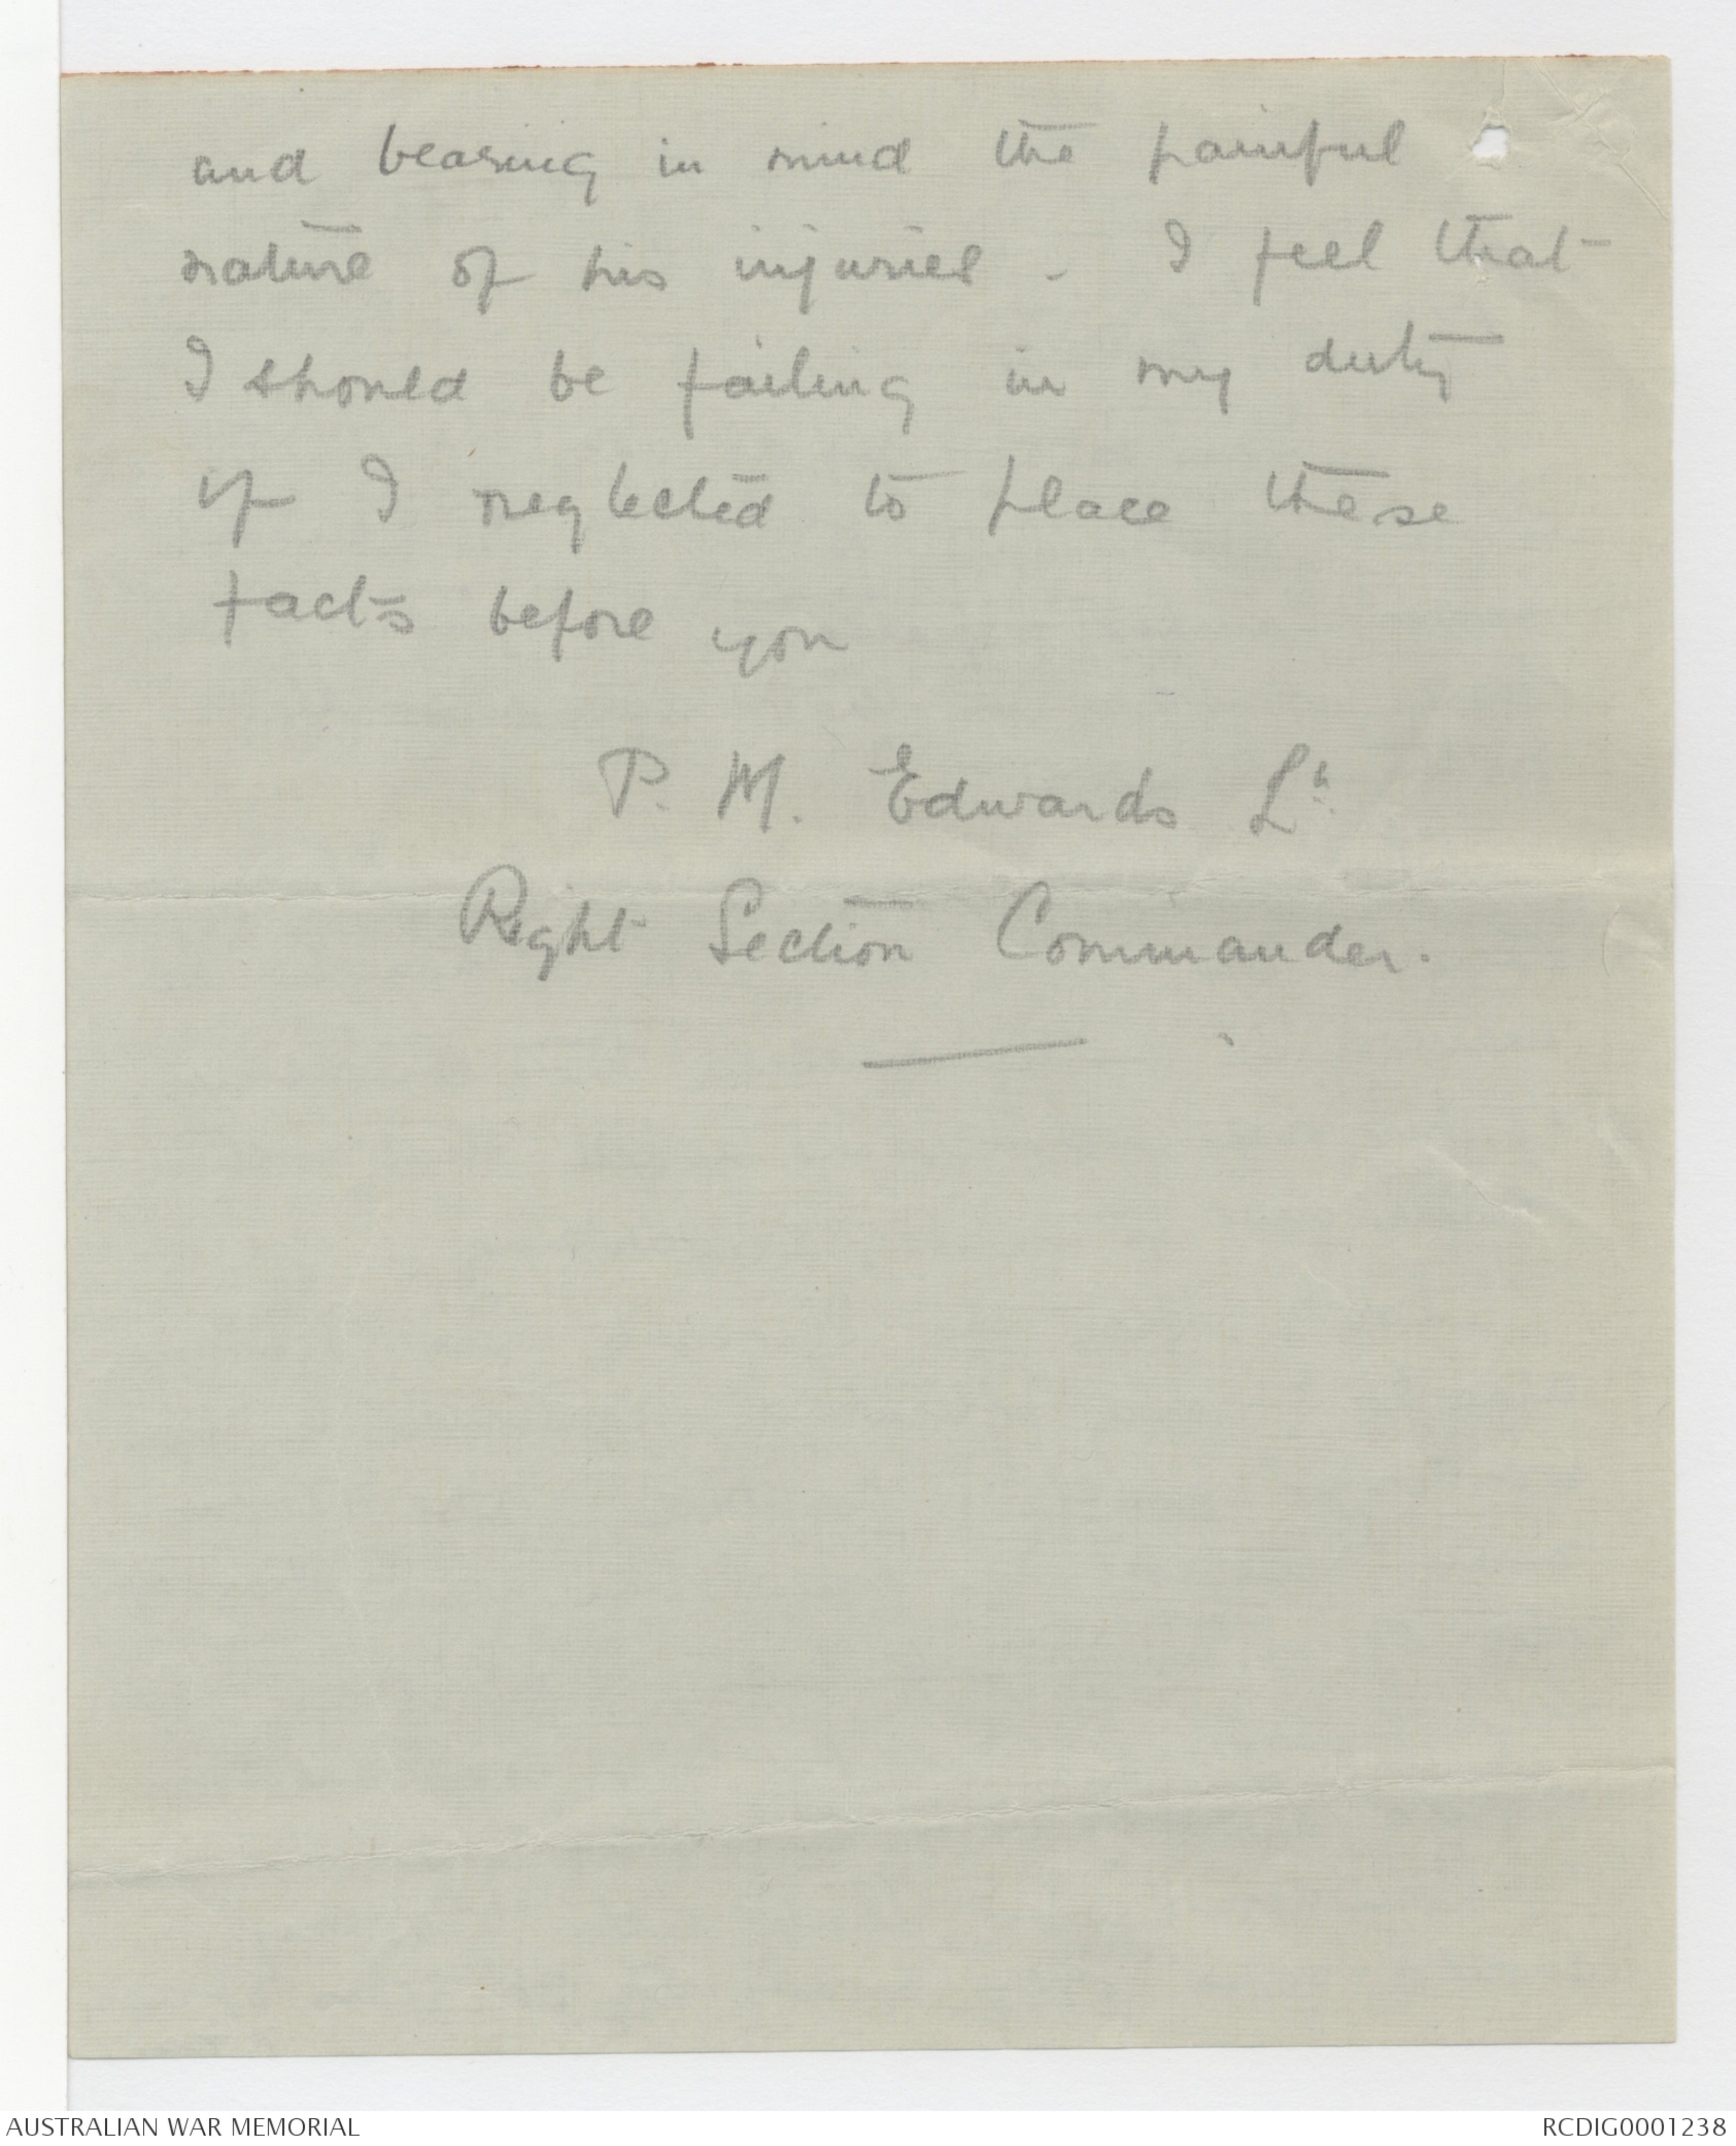 and bearing in mind the painful
nature of his injuries - I feel that
I should be failing in my duty
if I neglected to place these
facts before you
P. M. Edwards Lt.
Right Section Commander.
AUSTRALIAN WAR MEMORIAL
RCDIG0001238